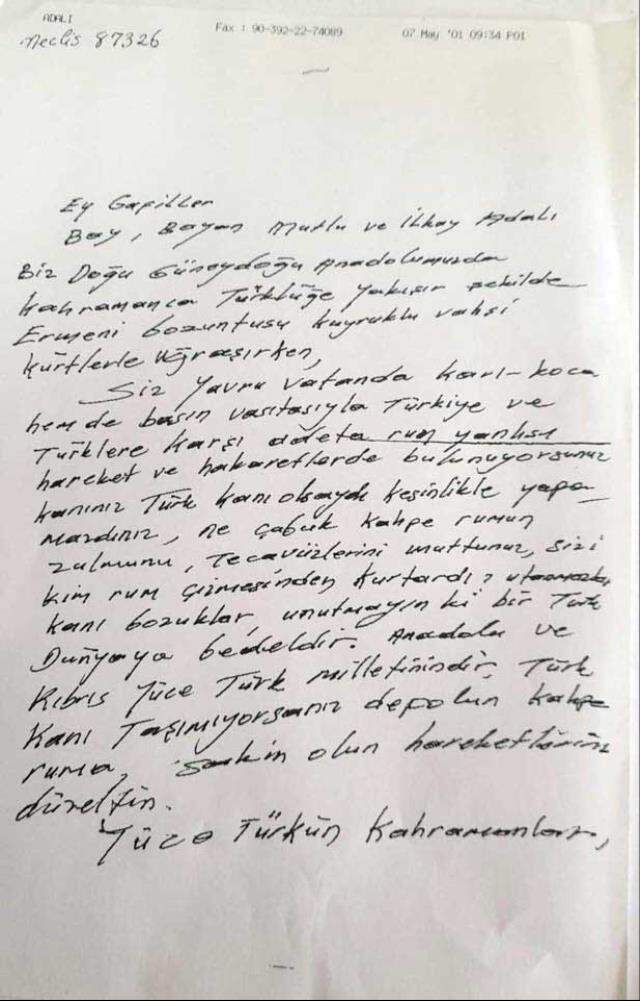 ADALI
Meclis 87326
Fax : 90-392-22-74089 07 May '01 09:34 P01
Ey Gafiller
Bay, Bayan Mutlu ve İlkay Adalı
Biz Doğu Güneydoğu Anadolumuzda
kahramanca Türklüğe yakışır şekilde
Ermeni bozuntusu kuyruklu vahşi
kürtlerle uğraşırken,
Siz yavru vatanda karı-koca
hem de basın vasıtasıyla Türkiye ve
Türklere karşı adeta rum yanlısı
hareket ve hakaretlerde bulunuyorsunuz
kanınız Türk kanı olsaydı kesinlikle yapa
mazdınız, ne çabuk kahpe rumun
zulmunu, tecavüzlerini unuttunuz, sizi
kim rum çizmesinden kurtardı?
kanı bozuklar, unutmayın ki bir Türk
Dünyaya bedeldir. Anadolu ve
Kıbrıs Yüce Türk milletinindir, Türk
kanı Taşımıyorsanız depolun kahpe
ruma, sakin olun hareketlerinizi
düzeltin.
Yüce Türkün Kahramanları,